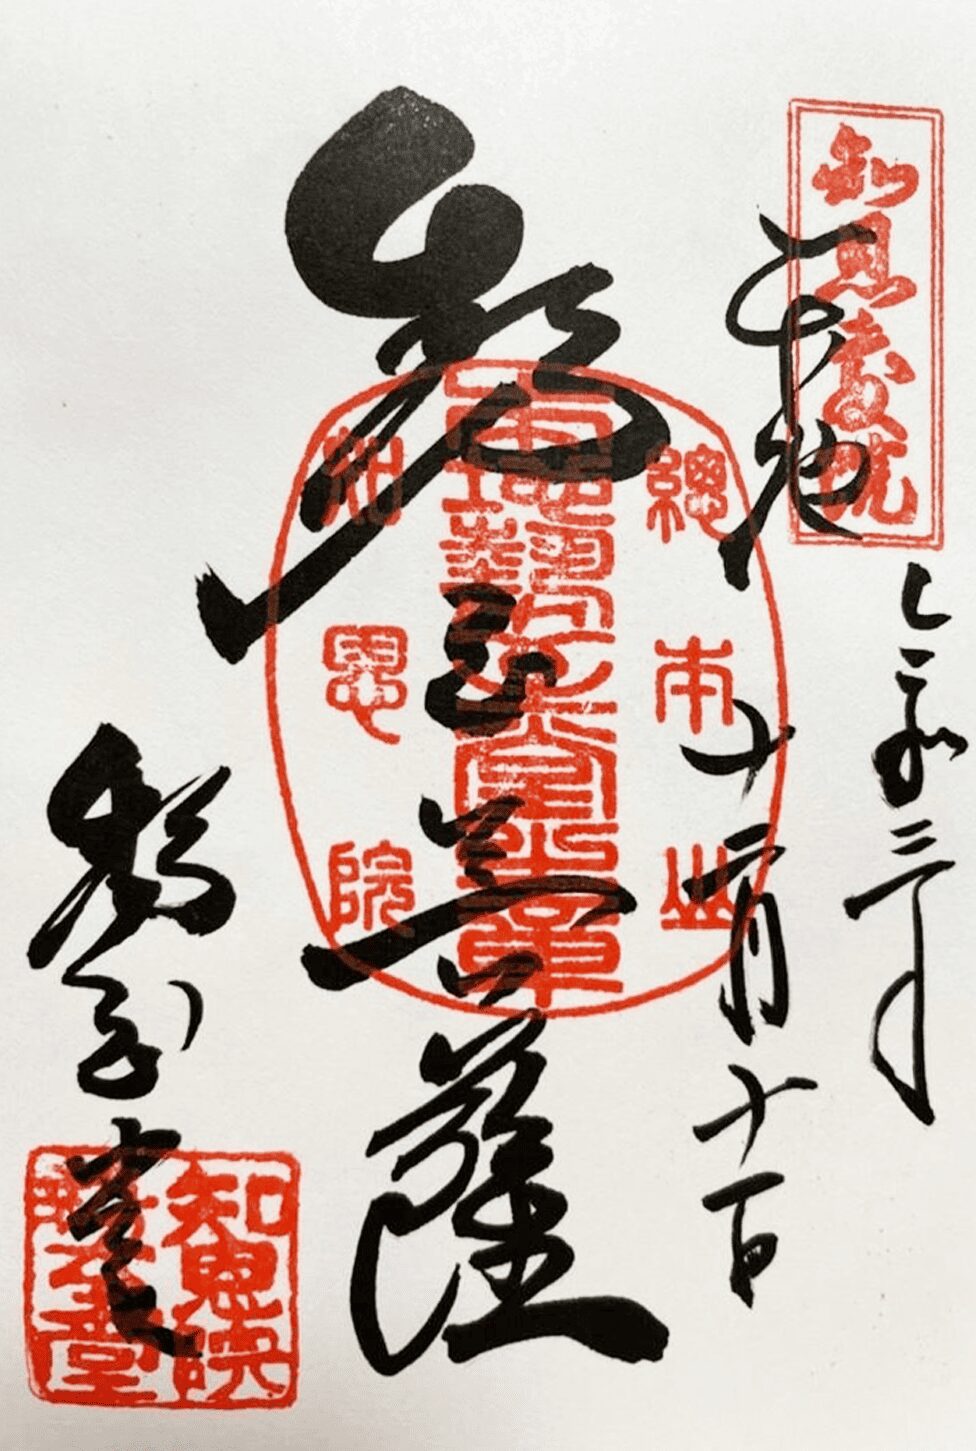 知恩教院
奉拝
令和三年
十一月十一日
總本山
知恩院
勢至菩薩
勢至堂
知恩院
勢至堂